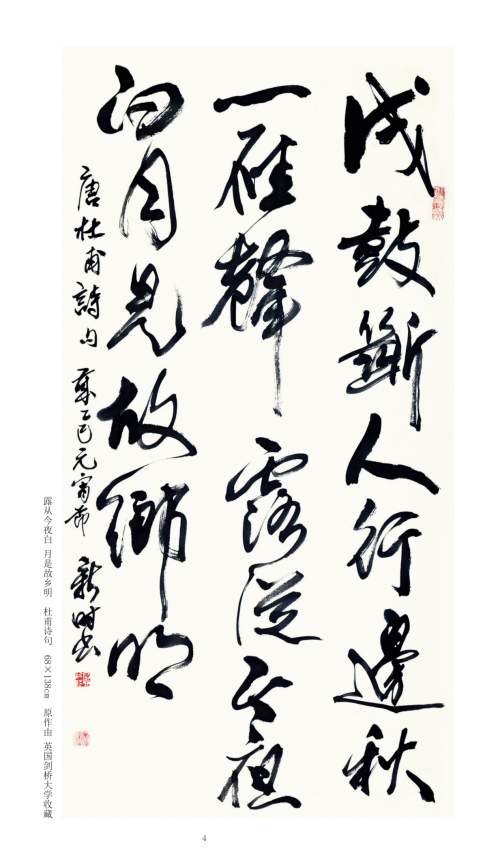 戍鼓斷人行邊秋
一雁聲露從今夜
白月是故鄉明
唐杜甫詩句 歲乙巳元宵節 新時書
露从今夜白 月是故乡明 杜甫诗句 68×138cm 原作由 英国剑桥大学收藏
4